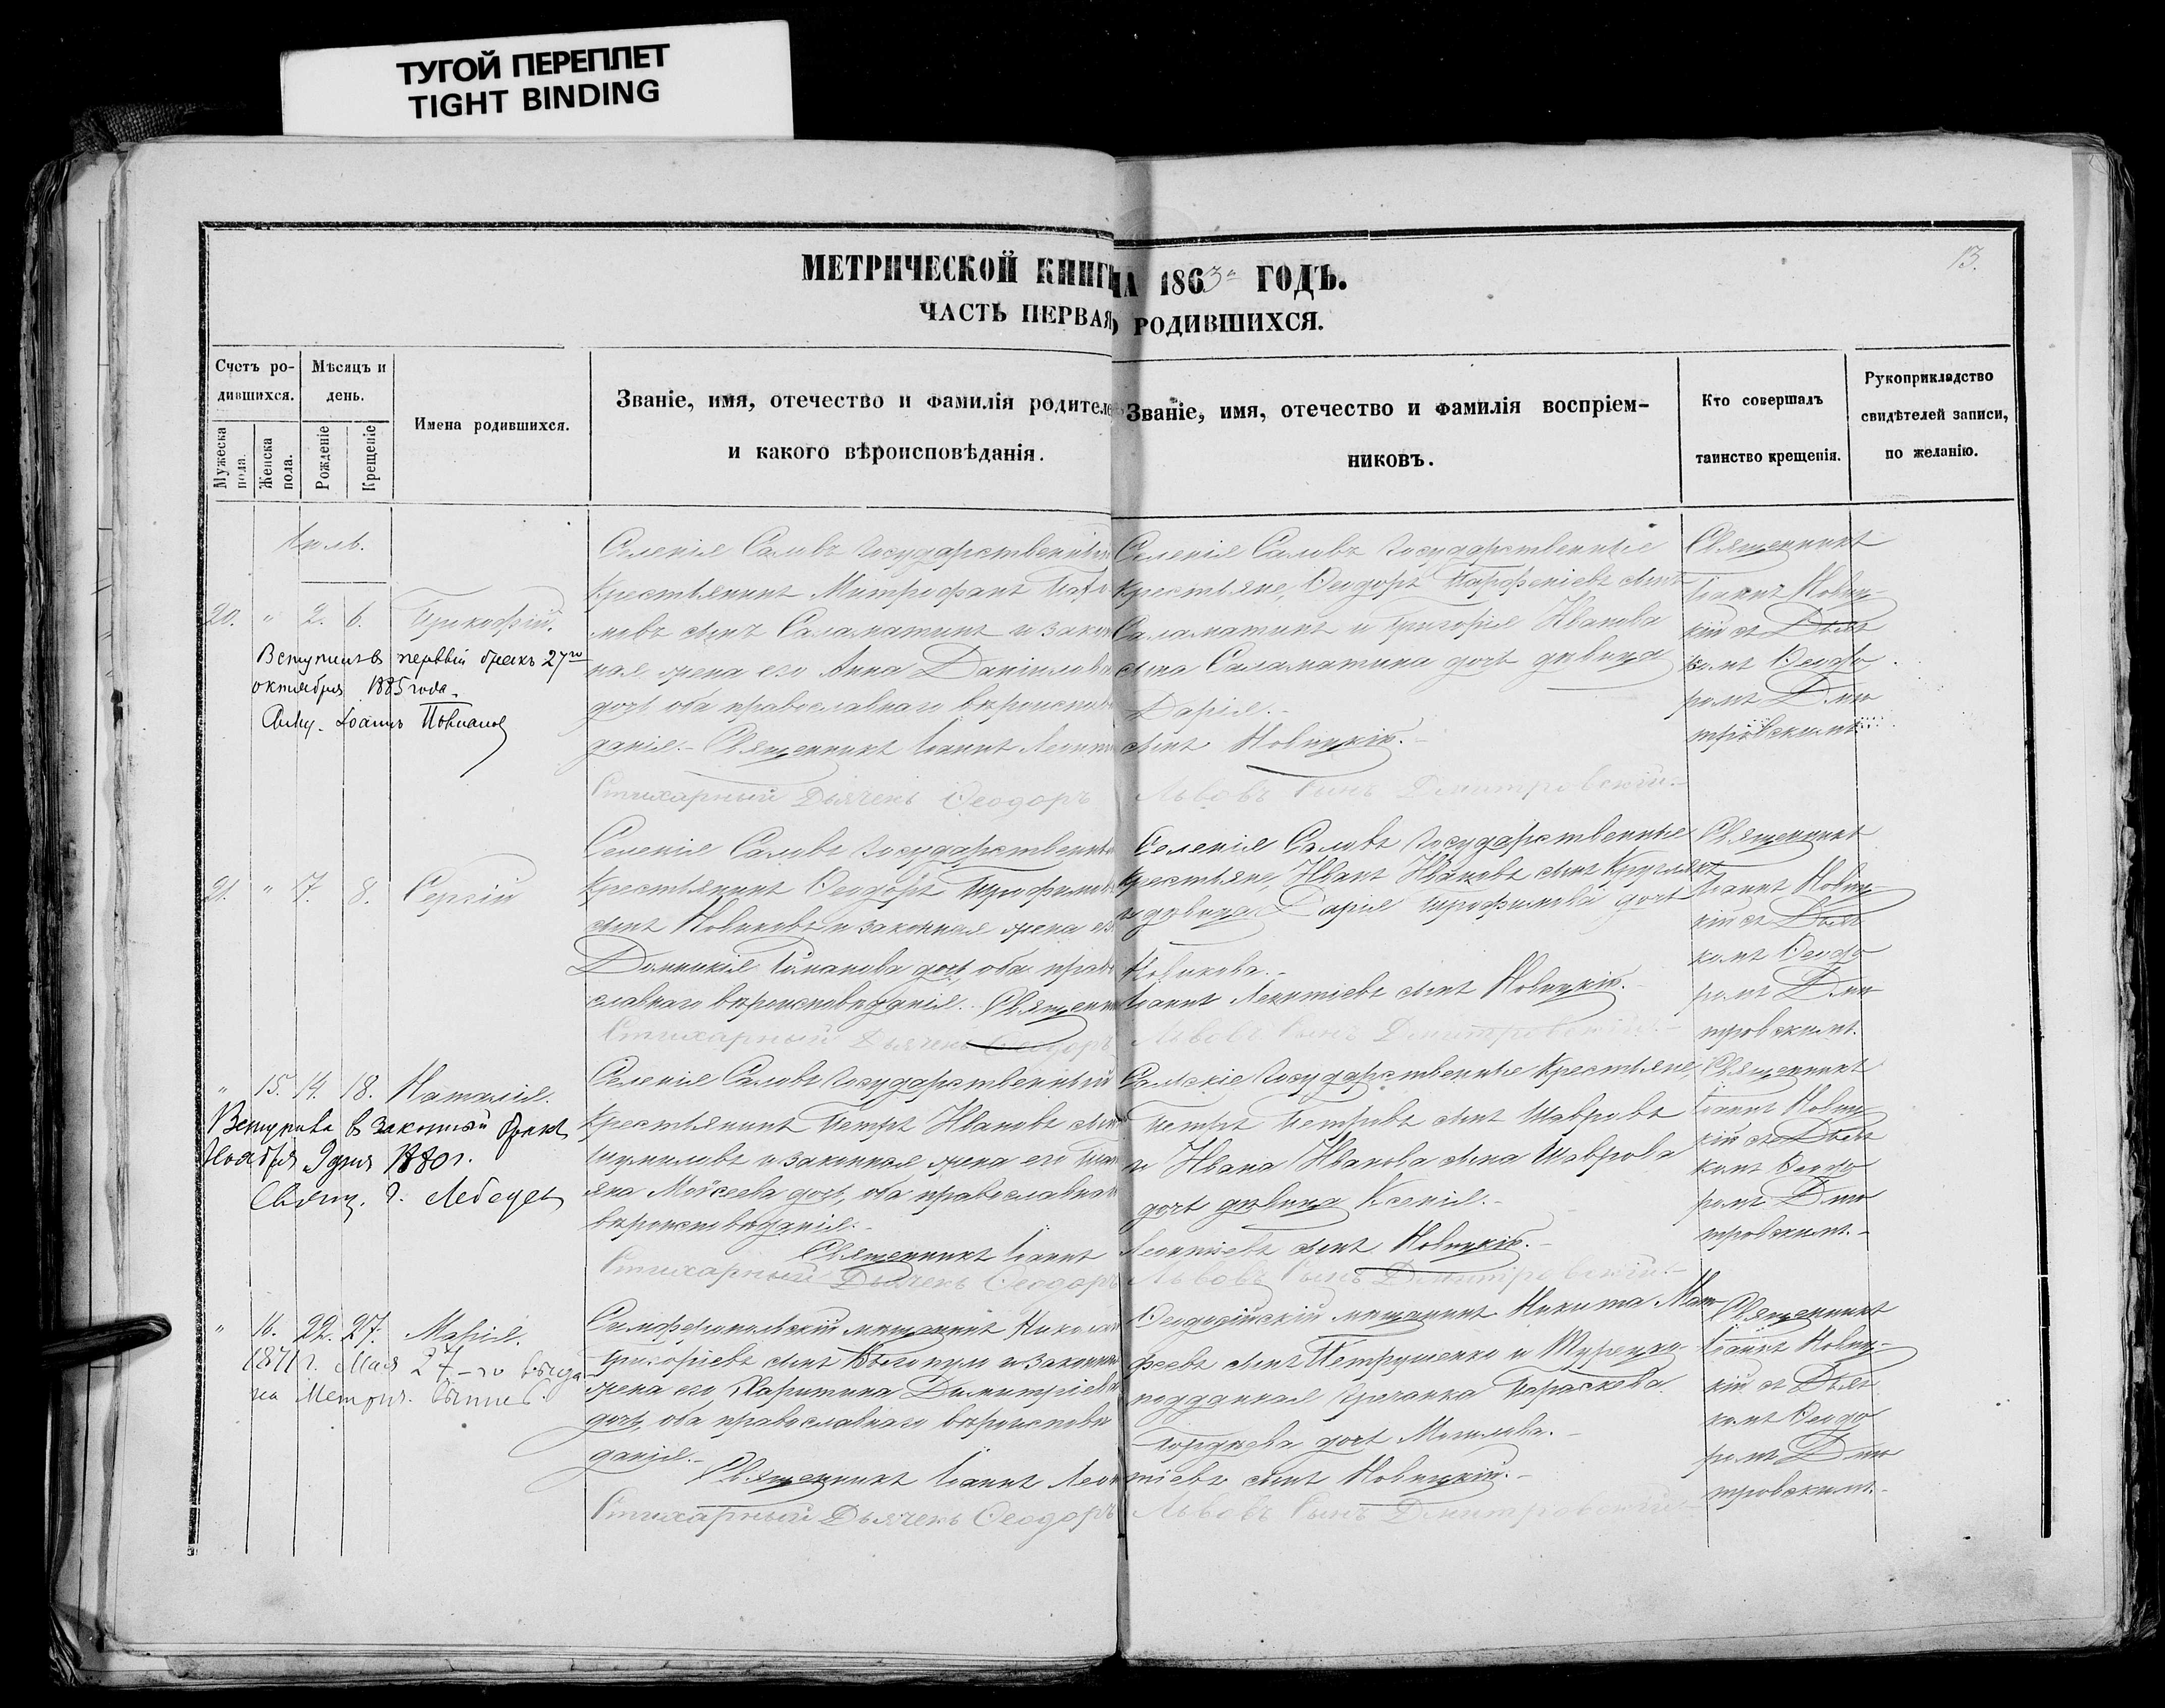 ТУГОЙ ПЕРЕПЛЕТ
TIGHT BINDING
13.
МЕТРИЧЕСКОЙ КНИГ НА 1863 ГОДЪ.
ЧАСТЬ ПЕРВАЯ, О РОДИВШИХСЯ.
Счетъ ро-
дившихся.
Мужеска пола.
Женска пола.
Мѣсяцъ и
день.
Рожденіе
Крещеніе
Имена родившихся.
Званіе, имя, отечество и фамилія родителе
и какого вѣроисповѣданія.
Званіе, имя, отечество и фамилія воспріем-
никовъ.
Кто совершалъ
таинство крещенія.
Рукоприкладство
свидѣтелей записи,
по желанію.
Іюль.
20. " 2. 6. Прокофій.
Вступилъ в первый бракъ 27го
октября 1885 года.
Селенія Саловъ Государственный
Крестьянинъ Митрофанъ
сынъ Саламатинъ и закон
ная жена его Анна Даніилова
дочь, оба православнаго вѣроисповѣ
данія.- Священникъ Іоаннъ Леонт
Стихарный Дьячекъ Ѳеодоръ
Селенія Саловъ Государственные
Крестьяне, Ѳеодоръ Парфеніевъ сынъ
Саламатинъ и Григорія Иванова
сына Саламатина дочь дѣвица
Дарія.-
сынъ Новицкій.-
Львовъ Сынъ Димитровскій.-
Священникъ
Іоаннъ Новиц-
кій съ Дьяч
комъ Ѳеодо
ромъ Дми
тровскимъ.
21. " 7. 8. Сергій
Селенія Саловъ Государственный
Крестьянинъ Ѳеодоръ Трофимовъ
сынъ Новиковъ и законная жена его
Домникія Романова дочь, оба право
славнаго вѣроисповѣданія.- Священн
Стихарный Дьячекъ Ѳеодоръ
Селенія Саловъ Государственные
Крестьяне, Иванъ Ивановъ сынъ Кругляк
и дѣвица Дарія Трофимова дочь
Новикова.-
Іоаннъ Леонтіевъ сынъ Новицкій.-
Львовъ Сынъ Димитровскій.-
Священникъ
Іоаннъ Новиц-
кій съ Дьяч
комъ Ѳеодо
ромъ Дми
тровскимъ.
" 15. 14. 18. Наталія.
Вступила в законный бракъ
Ноября 9 дня 1880 г.
Свящ. Г. Лебедев
Селенія Саловъ Государственный
Крестьянинъ Петръ Ивановъ сынъ
Шумиловъ и законная жена его Тать
яна Моисеева дочь, оба православнаго
вѣроисповѣданія.-
Священникъ Іоаннъ
Стихарный Дьячекъ Ѳеодоръ
Салскіе Государственные Крестьяне,
Петръ Петровъ сынъ Шавровъ
и Ивана Иванова сына Шаврова
дочь дѣвица Ксенія.-
Леонтіевъ сынъ Новицкій.-
Львовъ Сынъ Димитровскій.-
Священникъ
Іоаннъ Новиц-
кій съ Дьяч
комъ Ѳеодо
ромъ Дми
тровскимъ.-
" 16. 22. 27. Марія.
1871 г. Мая 27-го выда
на Метрич. выпись.
Симферопольскій мѣщанинъ Николай
Григоріевъ сынъ и законная
жена его Харитина Димитріева
дочь, оба православнаго вѣроисповѣ
данія.-
Священникъ Іоаннъ Леон
Стихарный Дьячекъ Ѳеодоръ
Ѳеодосійскій мѣщанинъ Никита Мат
феевъ сынъ Петрушенко и Турецко-
подданная гречанка Параскева
дочь
тіевъ сынъ Новицкій.-
Львовъ Сынъ Димитровскій.-
Священникъ
Іоаннъ Новиц-
кій съ Дьяч
комъ Ѳеодо
ромъ Дми
тровскимъ.-